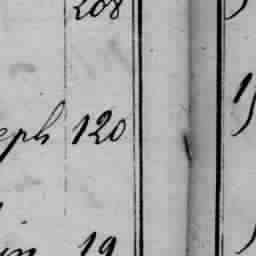 208
eph 120
in 19